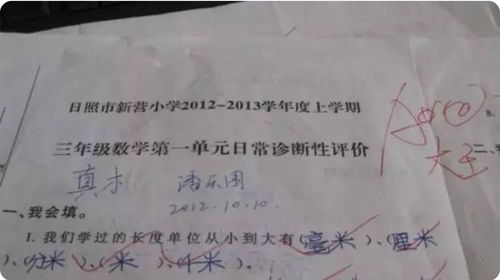 日照市新营小学2012-2013学年度上学期
三年级数学第一单元日常诊断性评价
真木 潘乐周
2012.10.10.
一、我会填。
1. 我们学过的长度单位从小到大有(毫米)、(厘米
)、(分米)、(米)、(千米)。
8.
二、